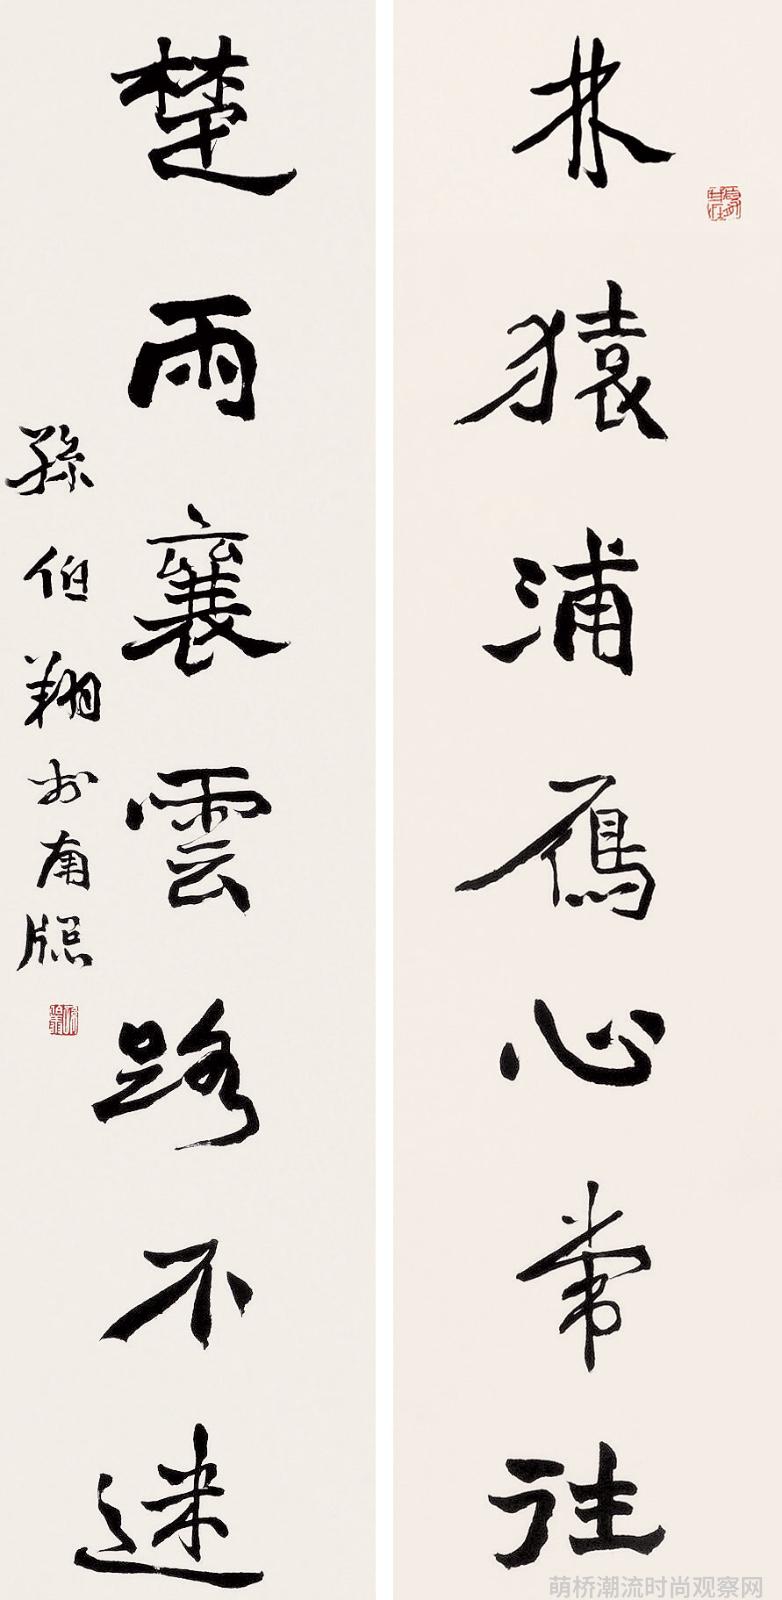 林猿浦鴈心常往
楚雨襄雲路不迷
孫伯翔於南牕
萌桥潮流时尚观察网